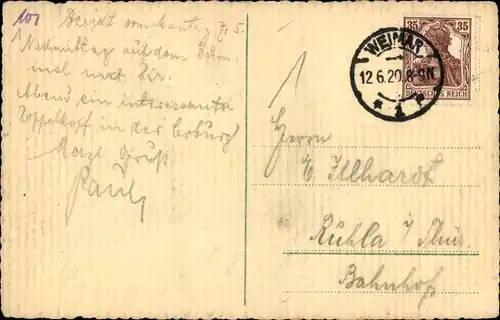 101
Bericht vom
Nachmittag auf dem
mal mit Dir.
Abend ein interessanter
Doppelkopf in der
Herzl. Gruß
Paul
WEIMAR
12.6.20. 8-9N.
* 1 *
35 35
DEUTSCHES REICH
Herrn
E. Illhardt
Ruhla i/ Thür
Bahnhof